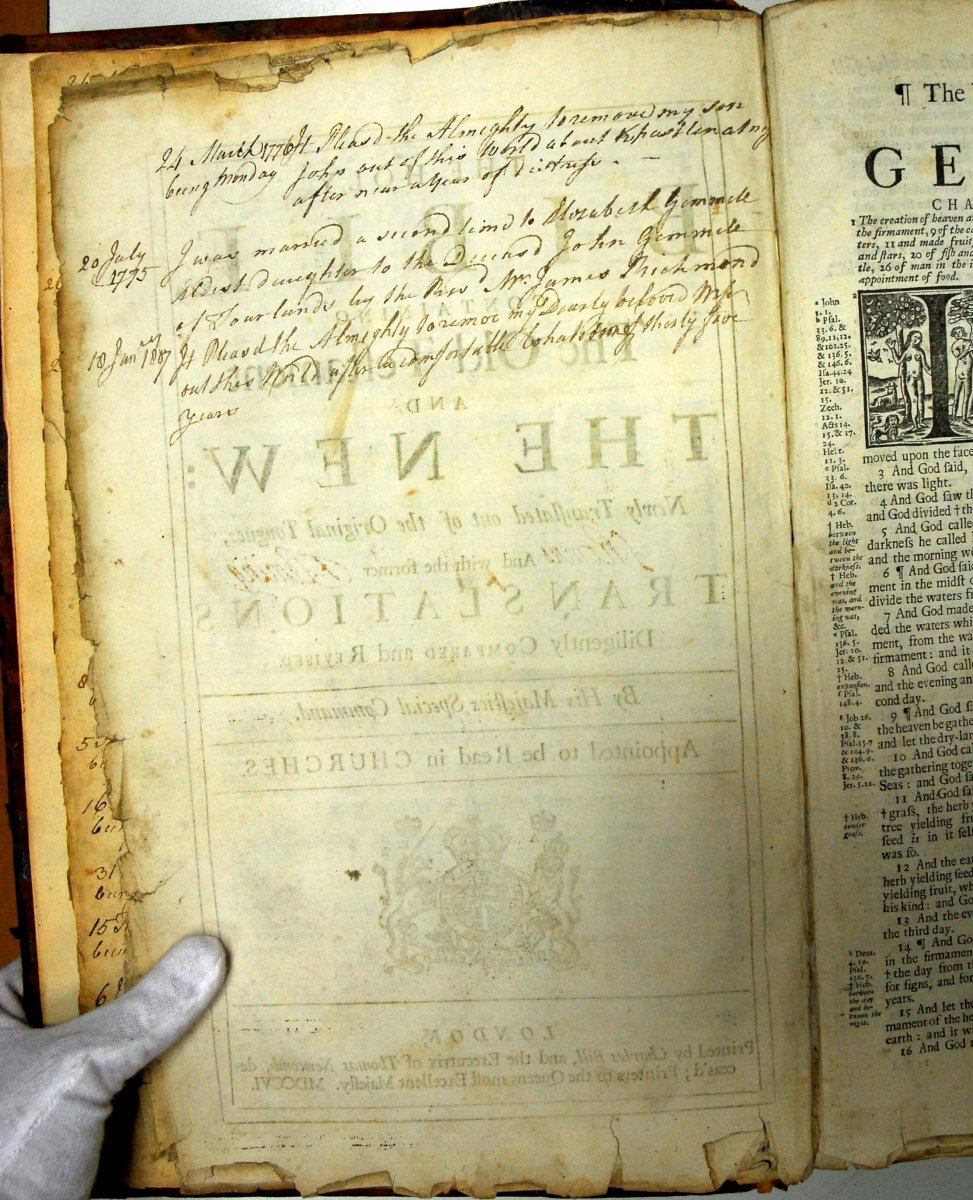 24 March 1776 It Pleasd the Almighty to remove my son
being Monday John out of this World about past ten at ng
after near a year of distress.
20 July
1775
I was married a second time to Elizabeth Gemmele
Eldest daughter to the Deceasd John Gemmele
at Tourlands by the Revd Mr. James Richmond
18 Janry 1807 It Pleasd the Almighty to remove my Dearly beloved Wife
out this World after a comfortable Cohabiting of thirty five
years
THE
HOLY
BIBLE
CONTAINING
The Old Testament
AND
THE NEW:
Newly Tranſlated out of the Original Tongues,
And with the former
TRANSLATIONS
Diligently COMPARED and REVISED.
By His Majeſties Special Command.
Appointed to be Read in CHURCHES.
LONDON,
Printed by Charles Bill, and the Executrix of Thomas Newcomb, de-
ceas'd; Printers to the Queens moſt Excellent Majeſty. MDCCVI.
5
16
31
15
6
¶ The
GE
CHA
1 The creation of heaven a
the firmament, 9 of the ea
ters, 11 and made fruit
and ſtars, 20 of fiſh and
tle, 26 of man in the i
appointment of food.
I
moved upon the face
3 And God ſaid,
there was light.
4 And God ſaw th
and God divided † th
5 And God calle
darkneſs he called
and the morning we
6 ¶ And God ſaid
ment in the midſt o
divide the waters fr
7 And God made
ded the waters whi
ment, from the wa
firmament: and it
8 And God calle
and the evening an
cond day.
9 ¶ And God ſa
the heaven be gathe
and let the dry-lan
10 And God ca
the gathering toge
Seas: and God ſa
11 And God ſa
† graſs, the herb
tree yielding fru
ſeed is in it ſelf
was ſo.
12 And the ear
herb yielding ſeed
yielding fruit, wh
his kind: and Go
13 And the eve
the third day.
14 ¶ And Go
in the firmamen
† the day from t
for ſigns, and for
years.
15 And let the
mament of the he
earth: and it w
16 And God m
a John
1. 1.
b Pſal.
33. 6. &
89. 11, 12.
& 102. 25.
& 136. 5.
& 146. 6.
Iſa. 44. 24
Jer. 10.
12. & 51.
15.
Zech.
12. 1.
Acts 14.
15. & 17.
24.
Hebr.
11. 3.
c Pſal.
33. 6.
Iſa. 40.
13, 14.
d 2 Cor.
4. 6.
† Heb.
between
the light
and be-
tween the
darkneſs.
† Heb.
and the
evening
was, and
the morn-
ing was,
&c.
e Pſal.
136. 5.
Jer. 10.
12 & 51.
15.
† Heb.
expanſion.
f Pſal.
148. 4.
g Job 26.
10. &
38. 8.
Pſal. 33. 7
& 104. 9.
& 136. 6.
Prov.
8. 29.
Jer. 5. 22.
† Heb.
tender
graſs.
h Deut.
4. 19.
Pſal.
136. 7.
† Heb.
between
the day
and be-
tween the
night.